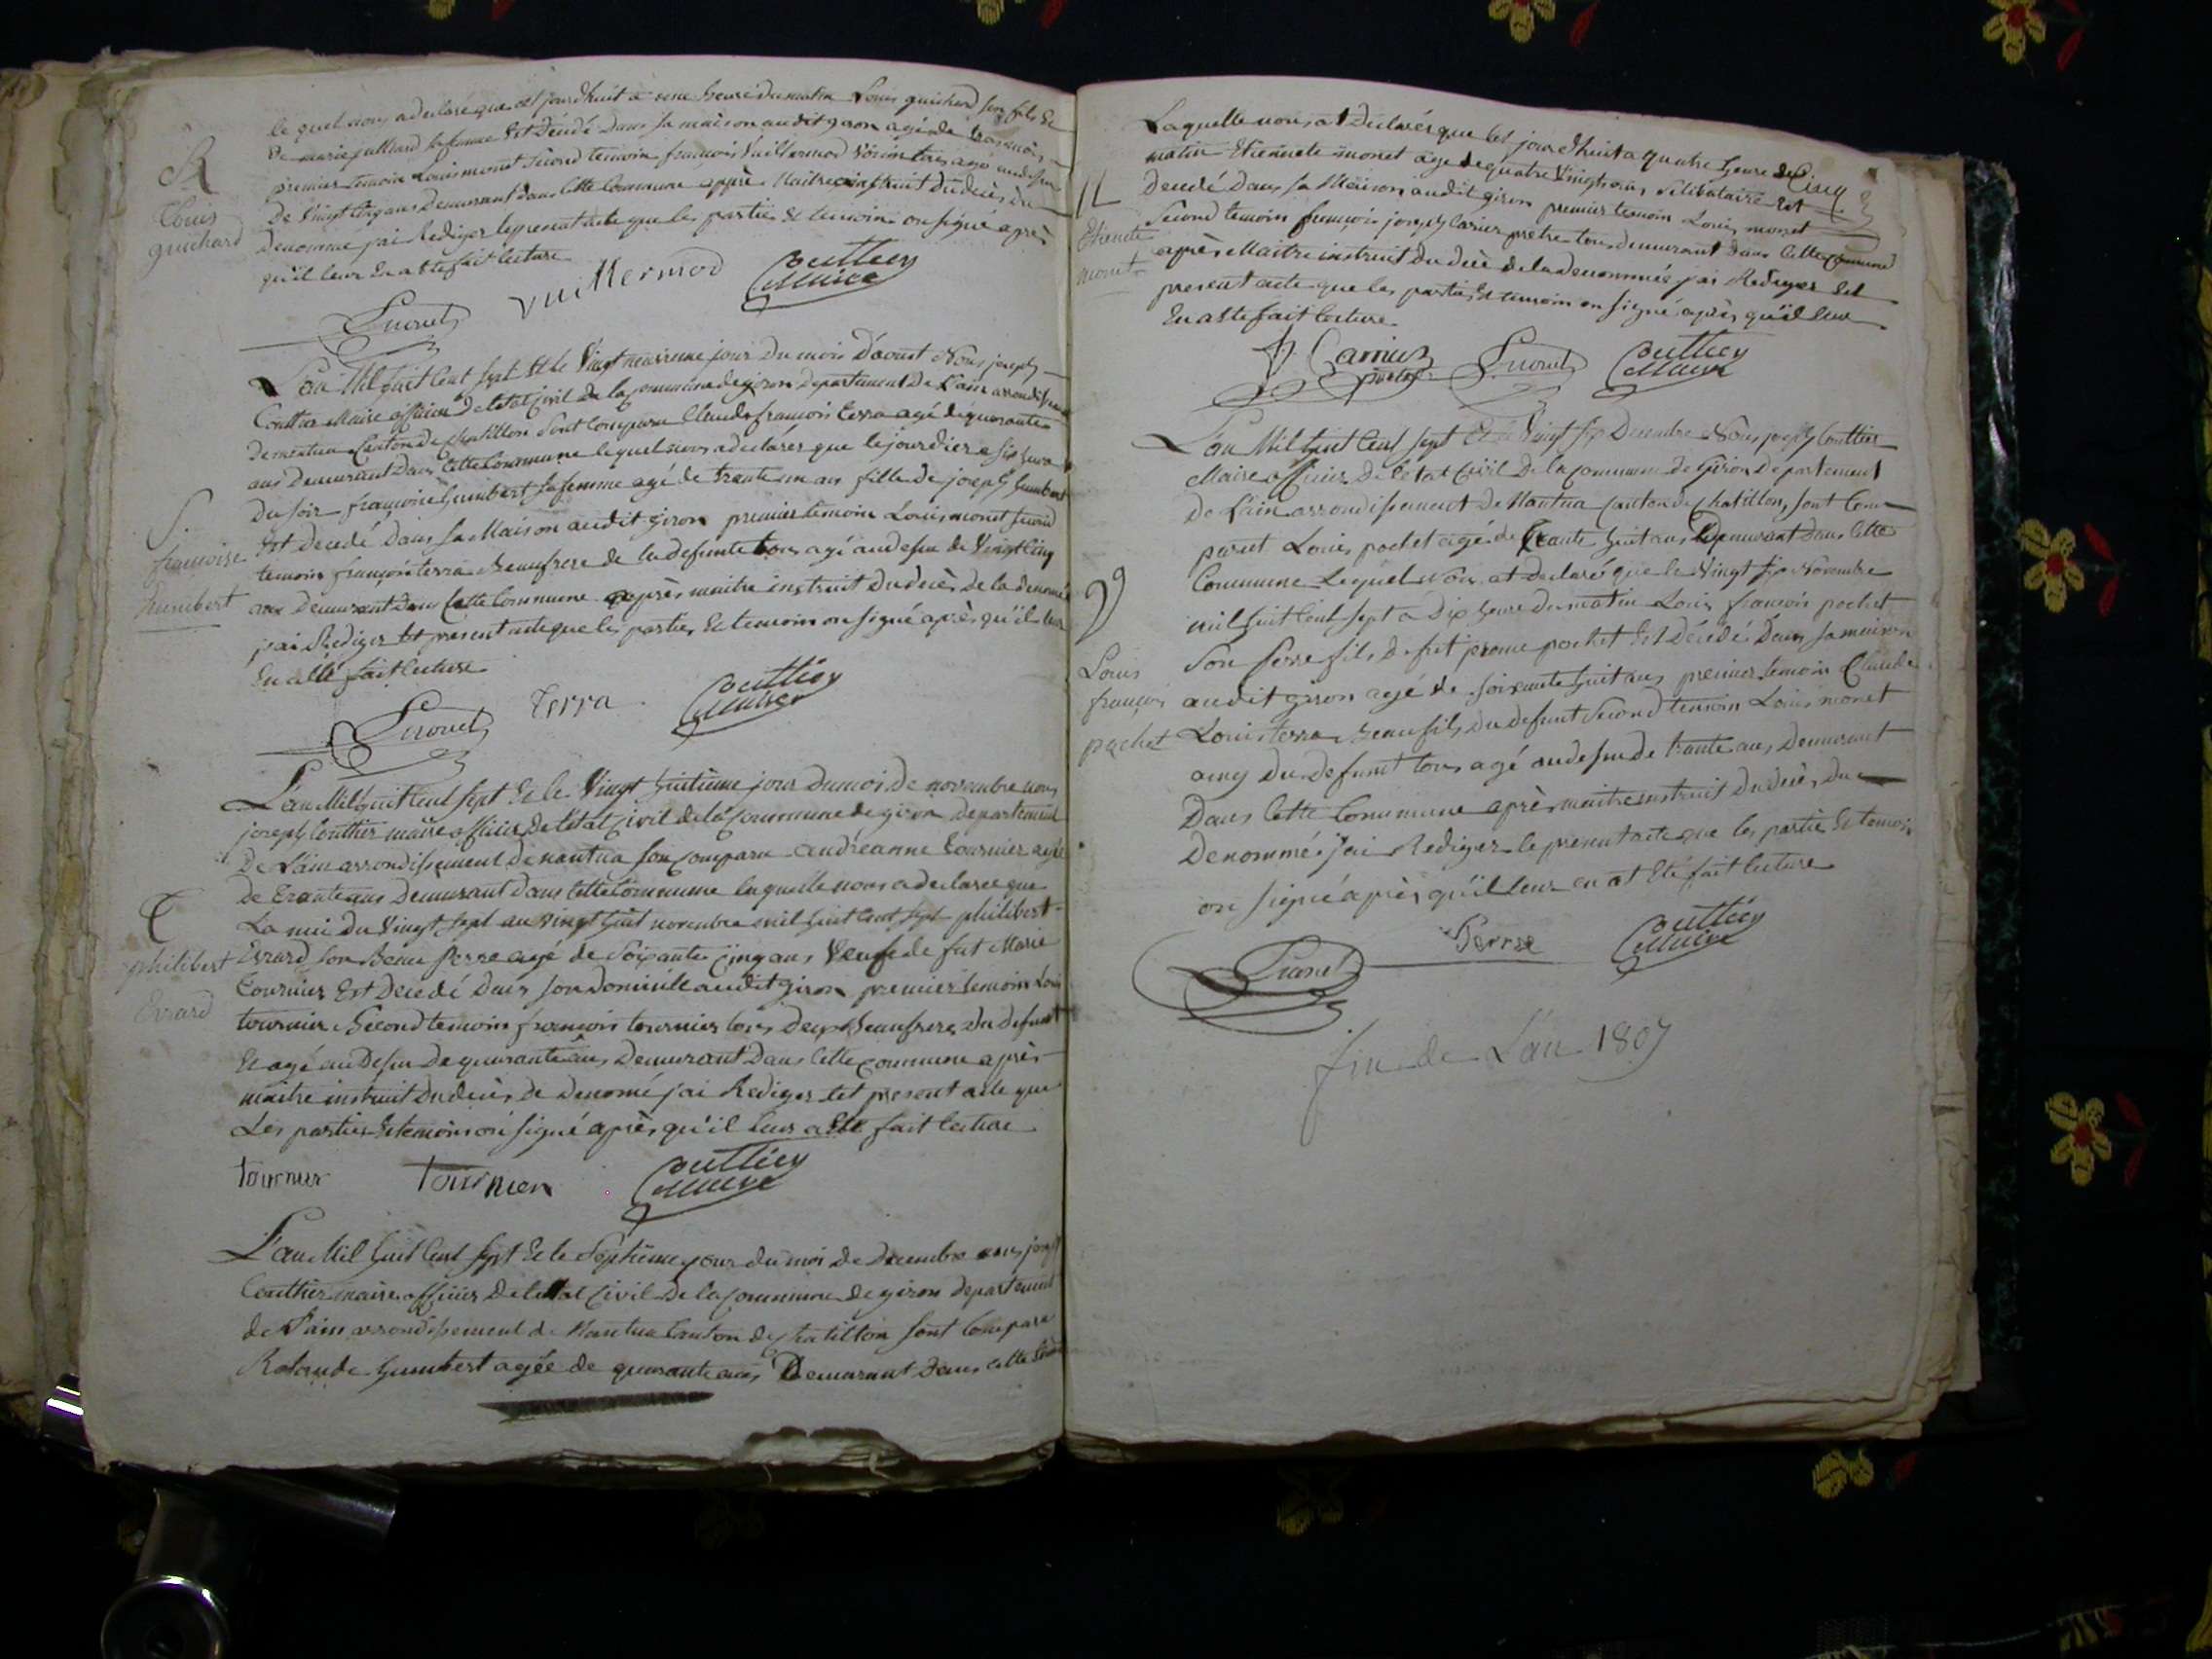 le quel nous a declaré que cet jourdhuit a onze heure du matin Louis guichard son fils et
de marie julliard sa femme Est décédé dans sa maison audit giron agé de trois mois
premier temoin Louis monet second temoin françois Vuillermod voisin tous agé audesu
De Vingt cinq ans Demeurant dans cette Commune après maitre instruit du decès du
Denommé jai Rediger le present acte que les parties et temoins on signé après
qu'il leur en a ette fait lecture
R
Louis
guichard
L monet Vuillermod Couttier Maire
L'an Mil huit Cent sept et le Vingt neuvieme jour Du mois D'aoust Nous joseph
Couttier Maire officier de letat civil de la commune de giron departement De Lain arrondissement
De nantua Canton de chatillon sont comparu Claude françois terra agé de quarante
ans Demeurant dans Cette Commune lequel nous a declarer que le jour dier a six heure
du soir françoise humbert sa femme agé de trante un ans fille de joseph humbert
Est decedé dans sa Maison audit giron premier temoin Louis monet second
temoin françois terra Beaufrere de la defunte tous agé audesu de Vingt Cinq
ans Demeurant dans Cette Commune après maitre instruit du decès de la denomé
j'ai Rediger Cet present acte que les parties Et temoin on signé après qu'il leur
En a êtté fait lecture
S.
françoise
humbert
L monet terra Couttier Maire
L'an Mil huit Cent sept Et le Vingt huitieme jour du mois de novembre nous
joseph Couttier maire officier De letat Civil de la Commune de giron departement
De Lain arrondissement de nantua son comparu andréanne tournier agée
de trante ans Demeurant dans Cette Commune laquelle nous a declaree que
La nui du Vingt sept au vingt huit novembre mil huit Cent sept philibert
Evrard son Beau perre agé de Soixante cinq ans Veufe de fut Marie
tournier Est Decedé dans son Domicile audit giron premier temoin Loui
tournier Second temoin françois tournier tous deux Beaufreres du defunt
Et agé audesu de quarante ans Demeurant Dans Cette commune après
maitre instruit du decès de denomé j'ai Rediger Cet present acte que
Les parties Et temoins on signé après qu'il leur a Eté fait lecture
T
philibert
Evrard
tournier tournier Couttier Maire
L'an Mil huit Cent sept Et le Septieme jour du moi de decembre nous joseph
Couttier maire officier De letat Civil De la Commune de giron departement
de Lain arrondissement de Nantua Canton de chatillon sont Comparu
Rolande humbert agée de quarante ans Demeurant dans cette
Laquelle nous at Declarés que Cet jourdhuit a quatre heure de
matin Etiennete monet agé de quatre Vingt Cinq
Decedé dans sa Maison audit giron premier temoin Louis monet
Second temoin françois joseph Carrier pretre tous demeurant dans Cette Commune
après Maitre instruit du decè de la denommée j'ai Rediger Cet
present acte que les parties Et temoin on signé après qu'il leur
En a Ette fait lecture
monet
Carrier pretre L monet Couttier Maire
L'an Mil huit Cent sept Et le Vingt six Decembre Nous joseph Couttier
Maire officier de letat Civil De la Commune de Giron Departement
De L'ain arrondissement de Nantua Canton de Chatillon, sont Com
parut Louis pochet agé de trante huit ans Demeurant dans Cette
Commune Lequel Nous at declaré que le Vingt six Novembre
mil huit Cent sept a Dix heure du matin Louis françois pochet
Son perre fils de fut prome pochet Est Décédé dans sa maison
audit giron agé de soixante huit ans premier temoin Claude
Louis terra Beaufils du defunt Second temoin Louis monet
amy du defunt tous agé audesu de trante ans Demeurant
Dans Cette Commune après maitre instruit du decès du
Denommé j'ai Rediger le present acte que les partie Et temoin
on signé après qu'il leur en at Eté fait lecture
Louis
françois
pochet
L monet Terra Couttier Maire
fin de L'an 1807